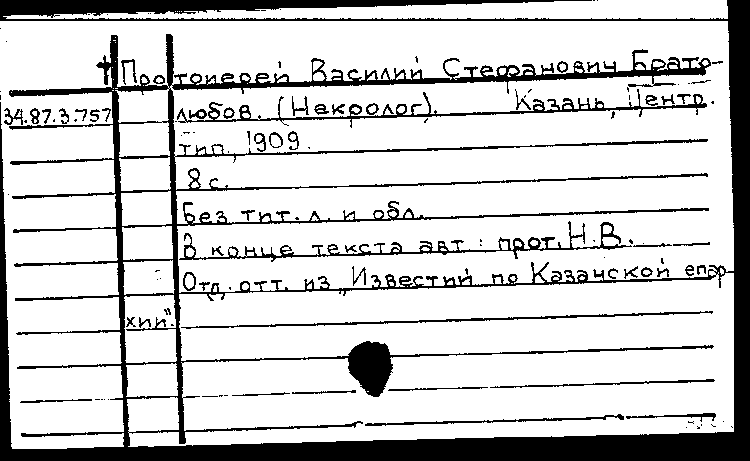 † Протоиерей Василий Стефанович Брато-
34.87.3.757 любов. (Некролог). Казань, Центр.
тип., 1909.
8 с.
Без тит. л. и обл.
В конце текста авт: прот. Н.В.
Отд. отт. из „Известий по Казанской епар-
хии".